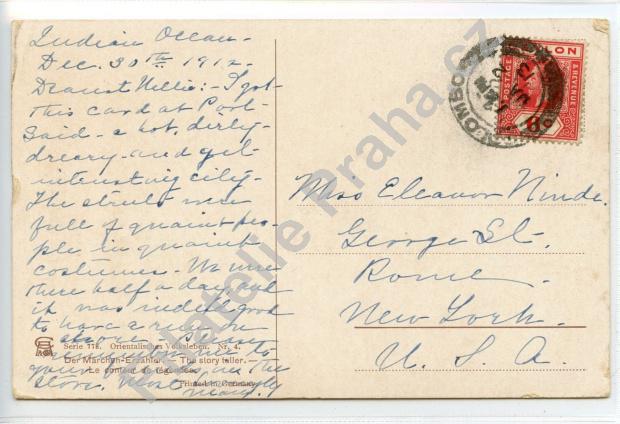 Indian Ocean -
Dec. 30th 1912 -
Dearest Nellie:- I got
this card at Port
Said - a hot, dirty
dreary - and yet
interesting city -
The streets were
full of quaint peo-
ple in quaint
costumes - We were
there half a day, and
it was indeed good
to have a run on
shore
Serie 118. Orientalisches Volksleben. Nr. 4.
Der Märchen-Erzähler. — The story teller. —
Le conteur
Printed in Germany
store. Most
COLOMBO
CEYLON
POSTAGE
& REVENUE
6
Miss Eleanor Ninde.
George St.
Rome.
New York.
U. S. A.
Filatelie Praha.cz